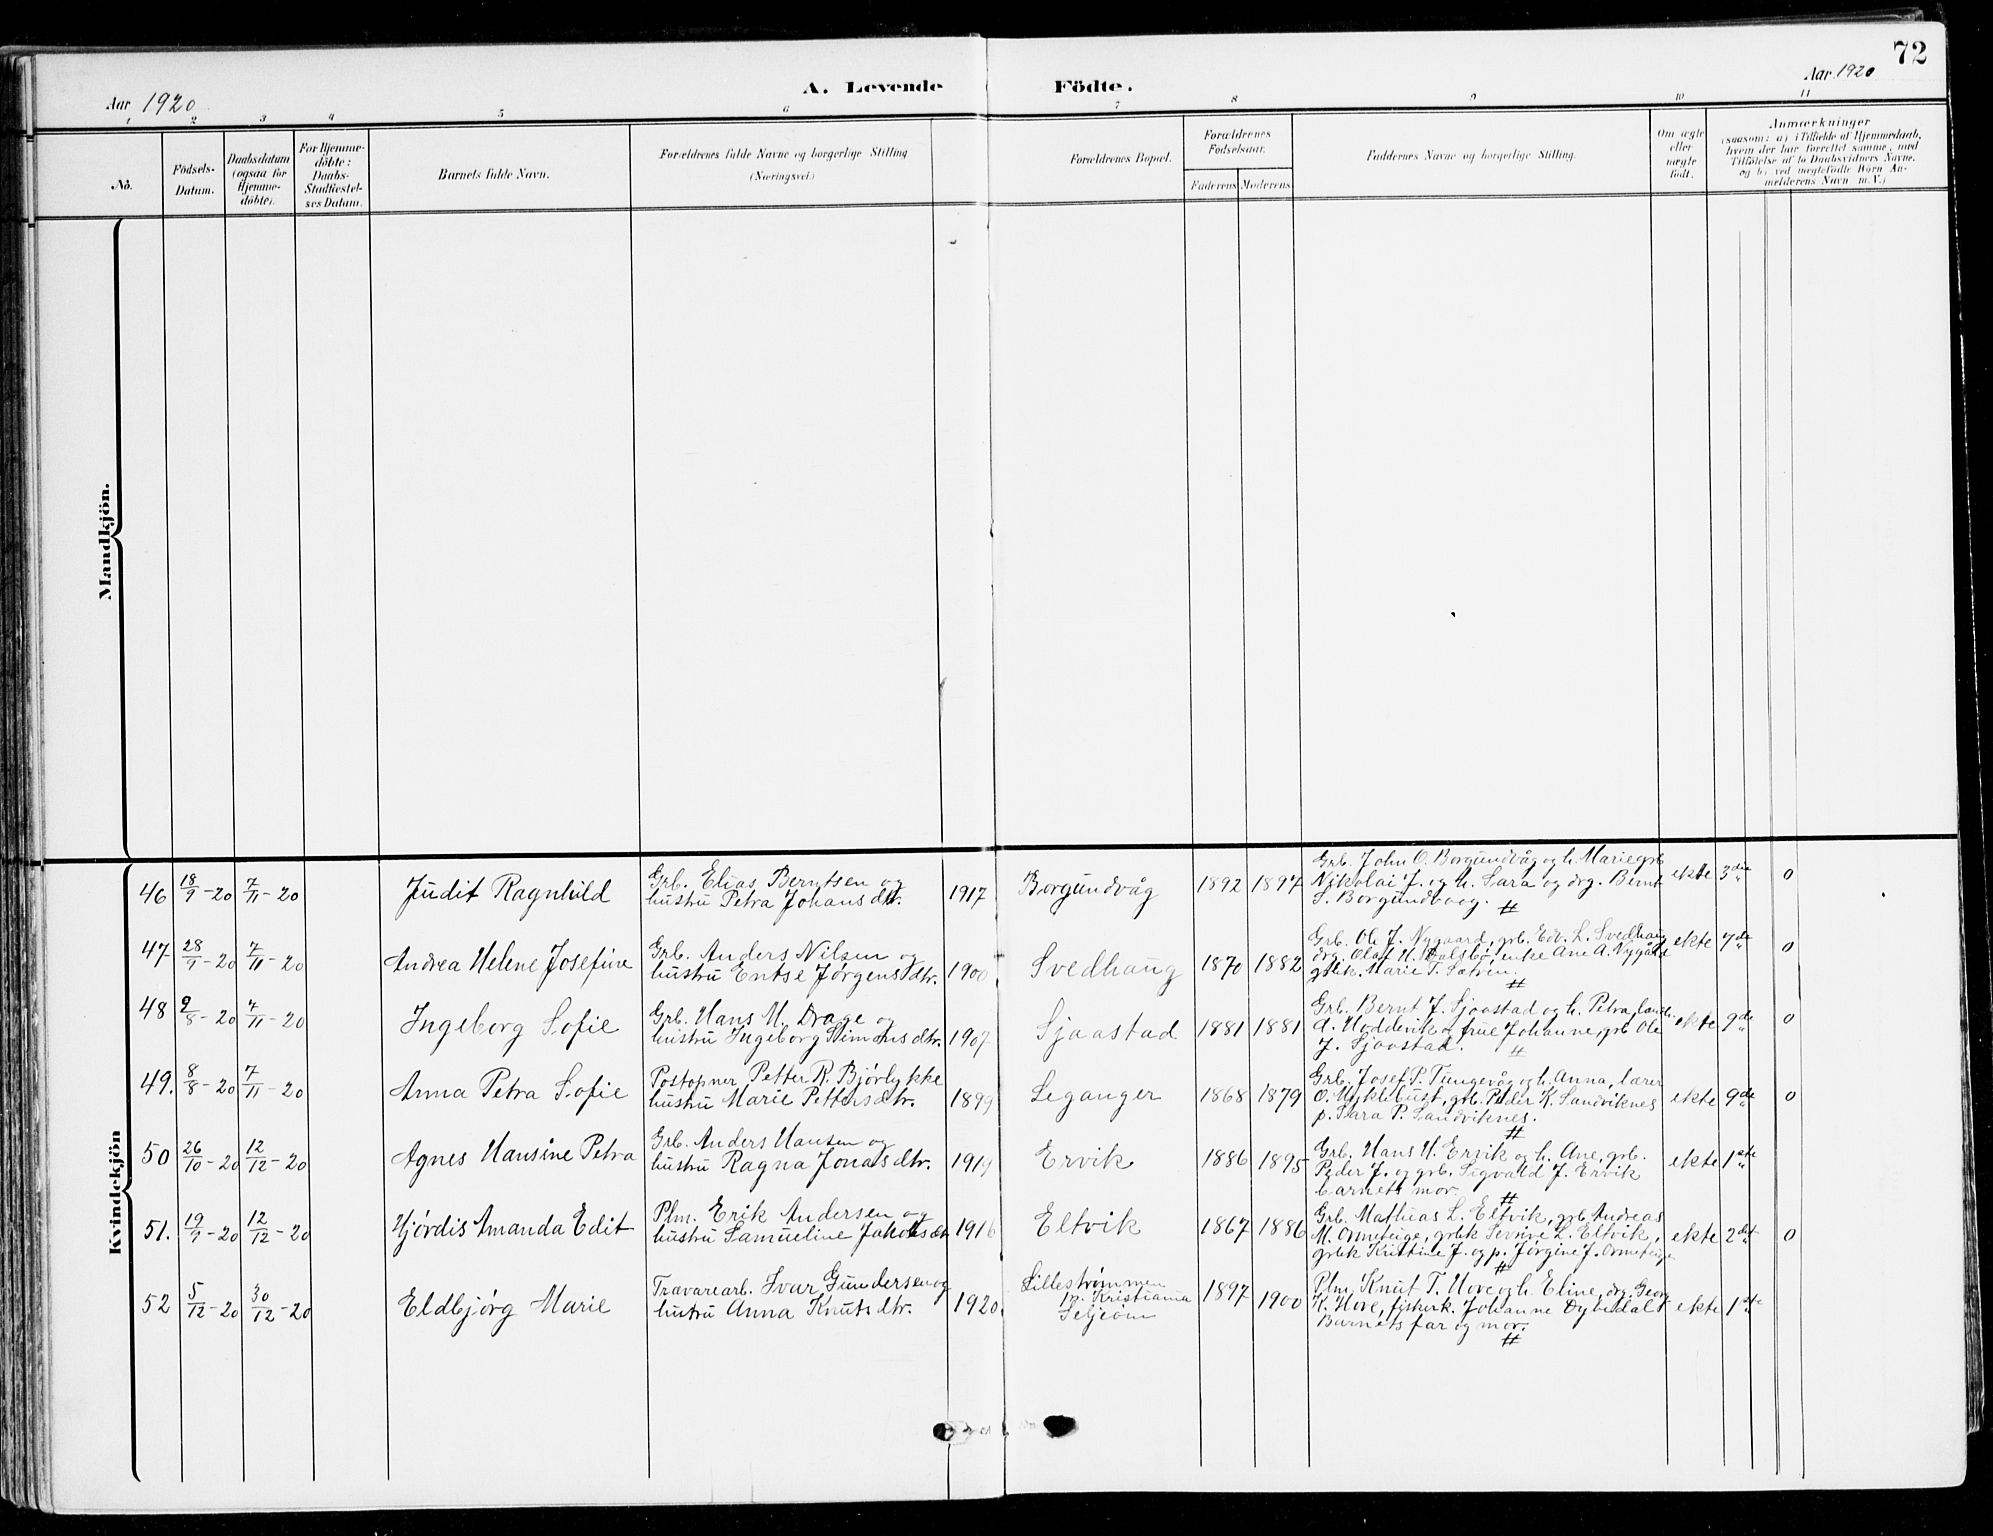 72
Aar 1920
A. Levende Födte.
Aar 1920
1 2 3 4 5 6 7 8 9 10 11
No.
Födsels-
Datum.
Daabsdatum
(ogsaa for
Hjemme-
döbte).
For Hjemme-
döbte:
Daabs-
Stadfæstel-
ses Datum.
Barnets fulde Navn.
Forældrenes fulde Navne og borgerlige Stilling
(Næringsvei.)
Forældrenes Bopæl.
Forældrenes
Födselsaar.
Faderens Moderens
Faddernes Navne og borgerlige Stilling.
Om ægte
eller
uægte
födt.
Anmærkninger
(saasom: a) i Tilfælde af Hjemmedaab,
hvem der har forrettet samme, med
Tilföielse af to Daabsvidners Navne,
og b) ved uægtefödte Börn An-
melderens Navn m. V.)
Mandkjön.
Kvindekjön
46 18/9-20 7/11-20 Judit Ragnhild
Grb. Elias Berntsen og
hustru Petra Johansdtr. 1917 Borgundvåg 1892 1897
Grb. John O. Borgundvåg og h. Marie grb
Nikolai J. og h. Sara og drg. Bernt
S. Borgundvaag. #
ekte 3die 0
47 28/9-20 7/11-20 Andrea Helene Josefine
Grb. Anders Nilsen og
hustru Entse Jørgensdtr. 1900 Svedhaug 1870 1882
Grb. Ole J. Nygaard, grb. Edv. L. Svedhaug
drg. Olaf H. Dalsbø, enke Ane A. Nygård
gbek. Marie T. Sætren. #
ekte 7de 0
48 9/8-20 7/11-20 Ingeborg Sofie
Grb. Hans M. Drage og
hustru Ingeborg Simonsdtr. 1907 Sjaastad 1881 1881
Grb. Bernt J. Sjaastad og h. Petra, landh.
A. Hoddevik og frue Johanne, grb Ole
J. Sjaastad. #
ekte 9de 0
49. 8/8-20 7/11-20 Anna Petra Sofie
Postopner Petter R. Bjørlykke
hustru Marie Pettersdtr. 1899 Leganger 1868 1879
Grb. Josef P. Tungevåg og h. Anna, lærer
O. Myklebust, grb. Peder K. Sandviknes
p. Sara P. Sandviknes. #
ekte 9de 0
50 26/10-20 12/12-20 Agnes Hansine Petra
Grb. Anders Hansen og
hustru Ragna Jonasdtr. 1919 Ervik 1886 1895
Grb. Hans H. Ervik og h. Ane, grb.
Peder J. og grb. Sigvald J. Ervik
barnets mor. #
ekte 1ste
51. 19/9-20 12/12-20 Hjørdis Amanda Edit
Plm. Erik Andersen og
hustru Samueline Jakobsdtr 1916 Eltvik 1867 1886
Grb. Mathias L. Eltvik, grb Andreas
M. Ormeteige, grbek Sevrine L. Eltvik,
grbek Kristine J. og p. Jørgine J. Ormeteige
#
ekte 2det 0
52 5/12-20 30/12-20 Eldbjørg Marie
Travarearb. Ivar Gundersen og
hustru Anna Knutsdtr. 1920. Lillestrømmen
p. Kristiania
Seljeøen 1897 1900
Plm. Knut T. Hove og h. Eline, drg. Georg
K. Hove, fiskerk. Johanne Dybedal
Barnets far og mor. #
ekte 1ste